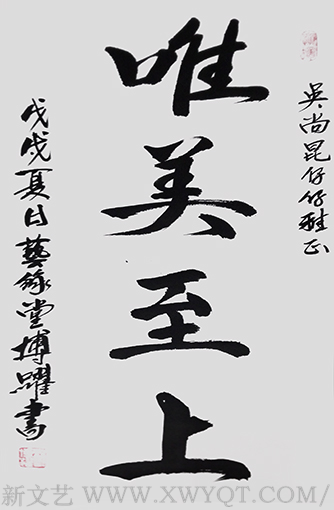 吴尚昆仔仔雅正
唯美至上
戊戌夏日藝緣堂博躍書
新文艺 WWW.XWYQT.COM/